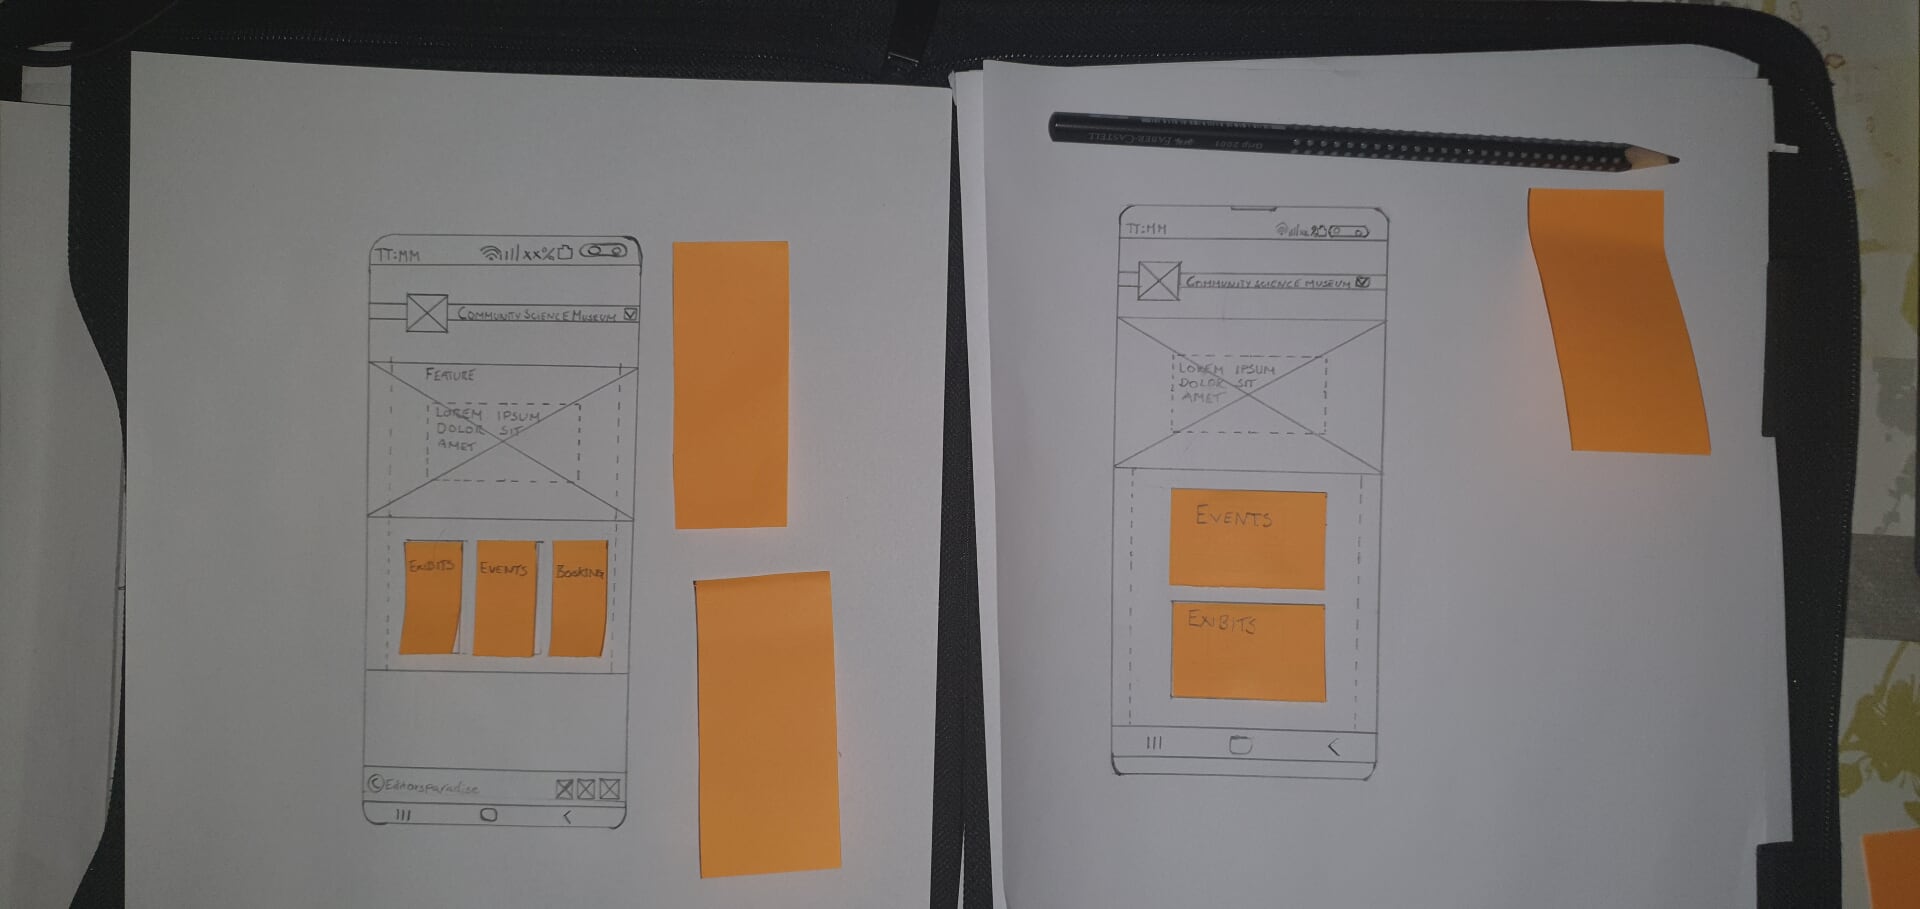 TT:MM
xx%
COMMUNITY SCIENCE MUSEUM
FEATURE
LOREM IPSUM
DOLOR SIT
AMET
EXIBITS
EVENTS
BOOKING
©Editorsparadise
FABER-CASTELL
Grip 2001
TT:MM
COMMUNITY SCIENCE MUSEUM
LOREM IPSUM
DOLOR SIT
AMET
EVENTS
EXIBITS